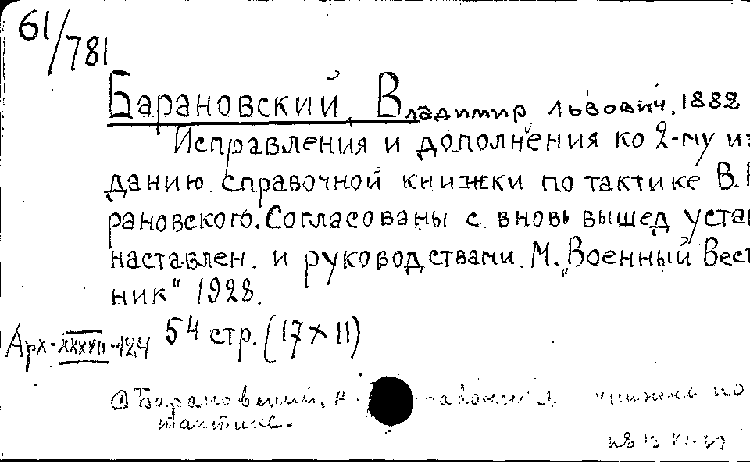 61/781
Барановский, Владимир Львович, 1882
Исправления и дополнения ко 2-му из
данию справочной книжки по тактике В. Б
рановского. Согласованы с вновь вышед. устав
наставлен. и руководствами. М. „Военный Вест
ник" 1928.
Арх. 54 стр. (17×11)
Барановский, книжка по
тактике.